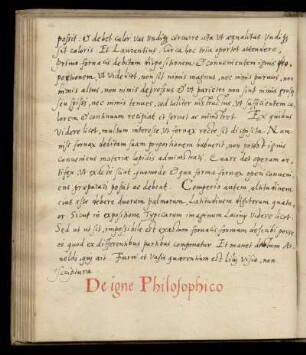 possit: Debet calor vas undiq; circuire ista ut aequalitas undiq;
sit caloris. Et Laurentius, Circa hoc tria oportet attendere,
primo fornacis debitam dispositionem, & convenientem ipsius pro,
portionem, ut videlicet, non sit nimis magnus, nec nimis parvus, non
nimis altus, non nimis depressus, & ut parietes non sint nimis gros,
si spissi, nec nimis tenues, sed taliter ut sufficientem ca,
lorem & continuum recipiat et fornax administret. Ex quibus
videre licet, multum interesse ut fornax recte sit disposita. Nam
nisi fornax debitam suam proportionem habuerit, non poterit ignis
convenienter materiae lapidis administrari. Quare det operam ar,
tifex, ut ex debet sint, quomodo & qua forma fornax operi conveni,
ens, praeparari possit ac debeat. Comperio autem altitudinem
eius esse debere duarum palmarum, Latitudinem digitorum quatu,
or sicut in expositione Typicarum imaginum Latius videre licet.
Sed ut ut sit, impossibile est exactam fornacis formam describi posse
eo quod ex differentibus partibus componatur. Et manet dictum Ar,
noldi, qui ait. Furni et vasis quaerentium est huius visio, non
scriptura
De igne Philosophico